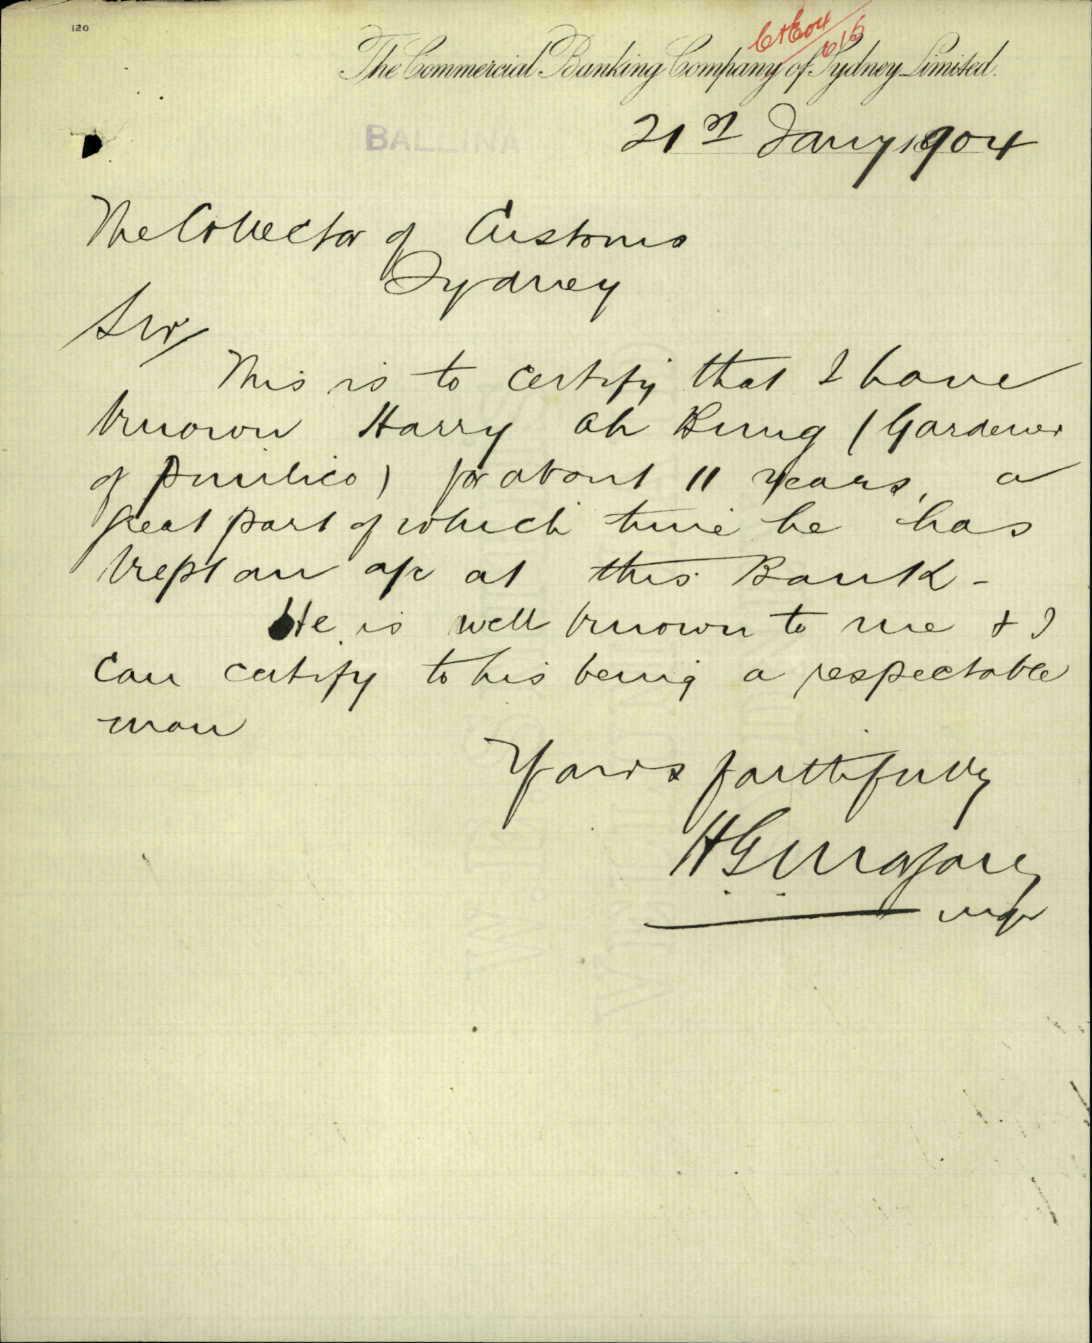 120
The Commercial Banking Company of Sydney Limited.
BALLINA
21st Jany 1904
The Collector of Customs
Sydney
Sir
This is to certify that I have
known Harry Ah Bung (Gardener
of Pimlico) for about 11 years, a
great part of which time he has
kept an a/c at this Bank -
He is well known to me & I
can certify to his being a respectable
man
Yours faithfully
mgr